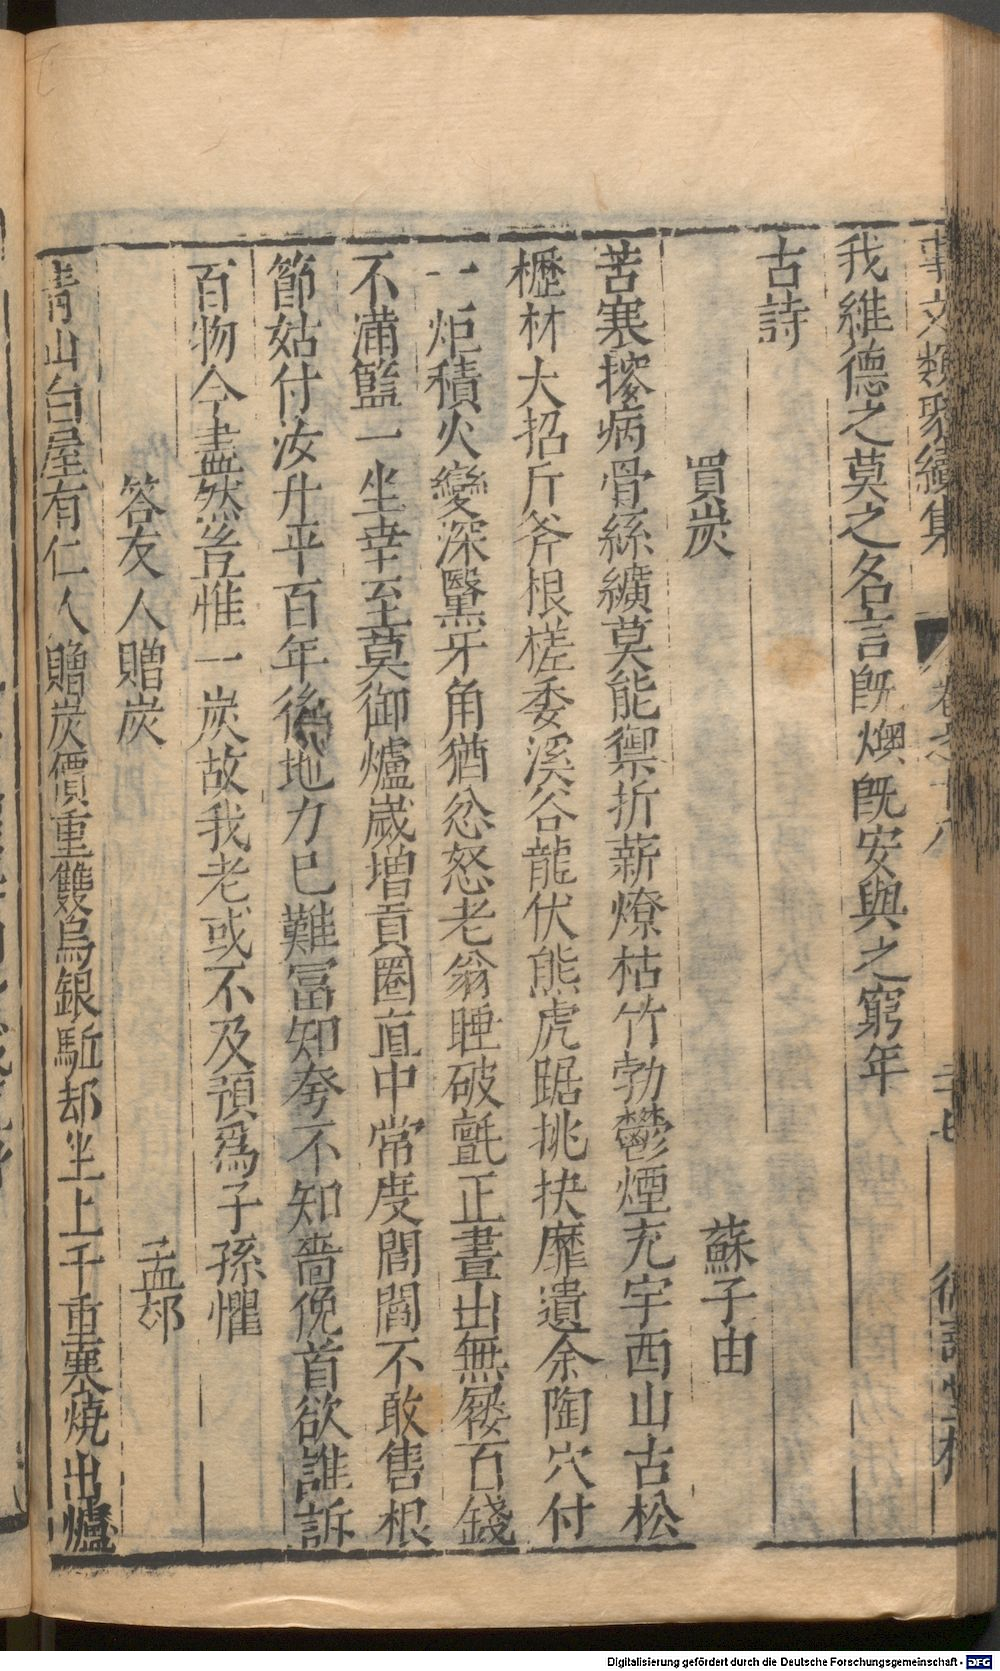 事文類聚續集 卷之十八
我維德之莫之名言旣燠旣安與之窮年
古詩
買炭 蘇子由
苦寒搜病骨絲纊莫能禦折薪燎枯竹勃鬱煙充宇西山古松
櫪材大招斤斧根槎委溪谷龍伏熊虎踞挑抉靡遺余陶穴付
一炬積火變深黳牙角猶忿怒老翁睡破氈正晝出無屨百錢
不滿籃一坐幸至莫御爐歲增貢圈直中常度閭閻不敢售根
節姑付汝升平百年後地力已難冨知夸不知嗇俛首欲誰訴
百物今盡然豈惟一炭故我老或不及預爲子孫懼
答友人贈炭 孟郊
靑山白屋有仁人贈炭價重雙烏銀駈却坐上千重寒燒出爐
Digitalisierung gefördert durch die Deutsche Forschungsgemeinschaft - DFG